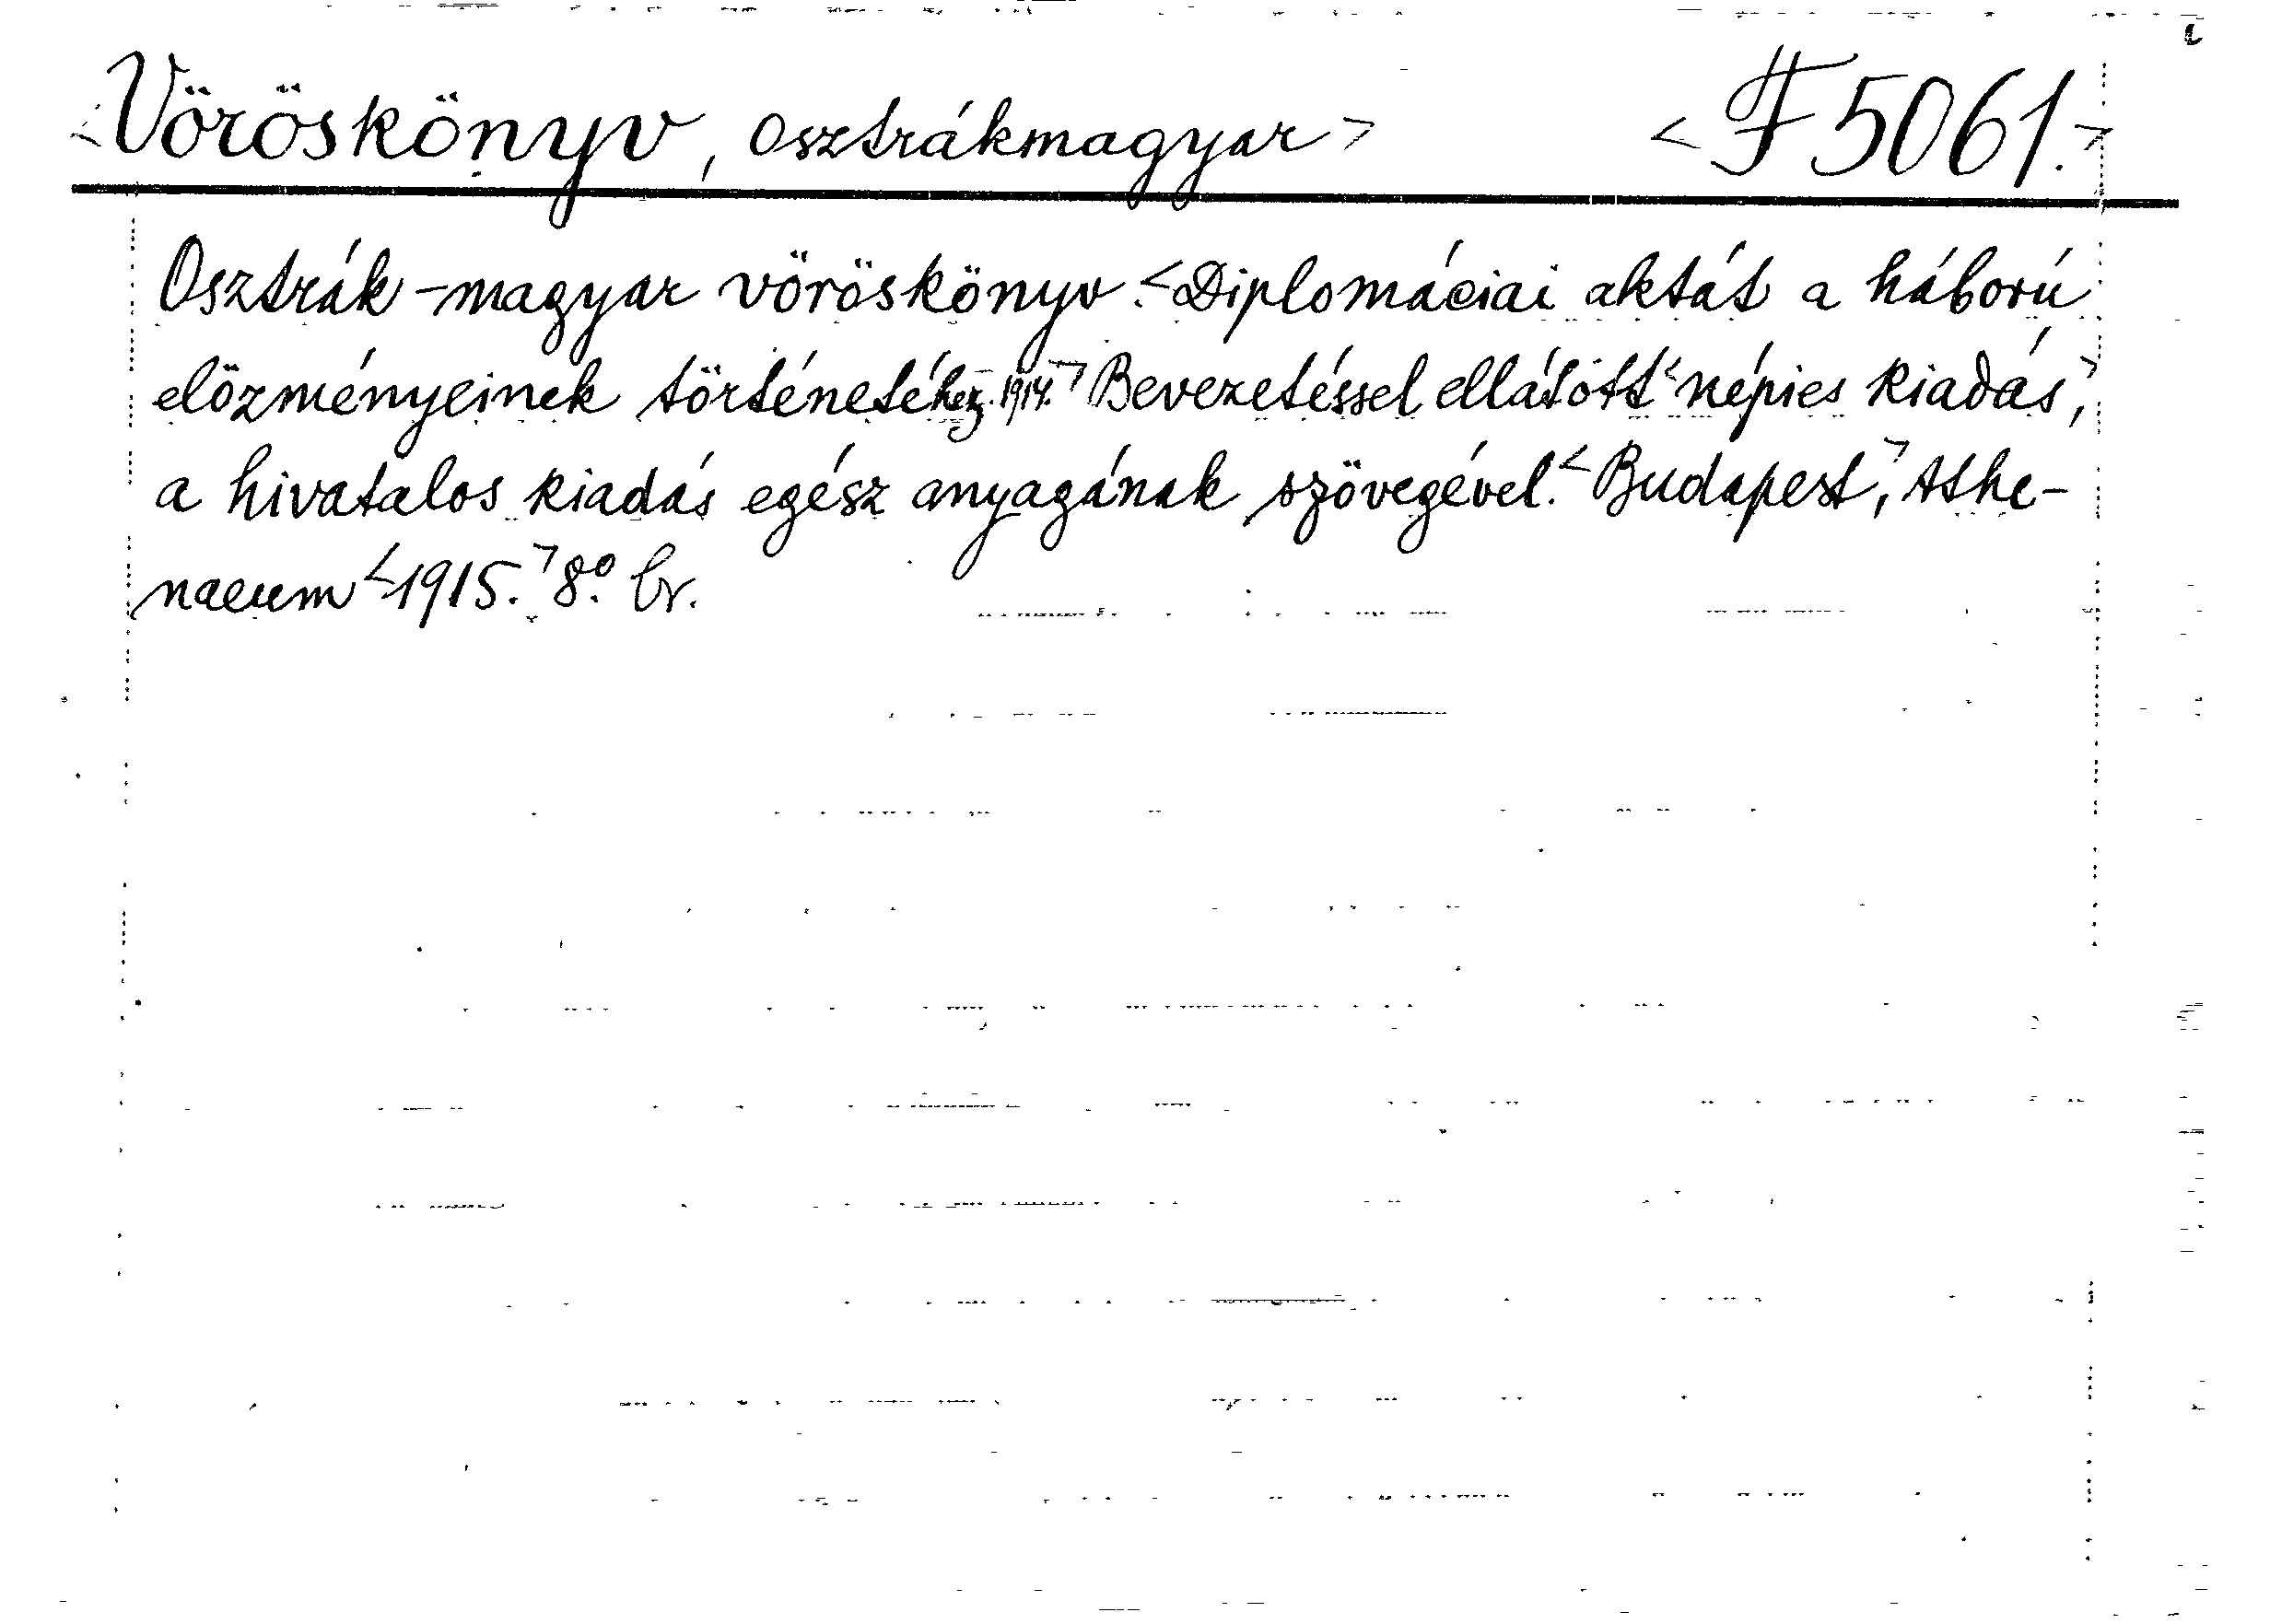 <Vöröskönyv, osztrákmagyar> <F 5061.>
Osztrák-magyar vöröskönyv.<Diplomáciai aktát a háború
előzményeinek történetéhez. 1914.> Bevezetéssel ellátott <népies kiadás,>
a hivatalos kiadás egész anyagának szövegével.<Budapest,> Athe-
naeum <1915.> 8º. br.